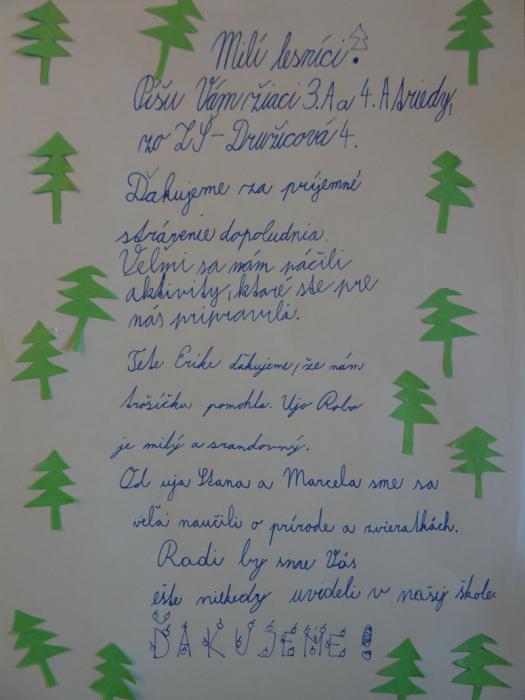 Milí lesníci!
Píšu Vám žiaci 3.A a 4.A triedy,
zo ZŠ - Družicová 4.
Ďakujeme za príjemné
strávenie dopoludnia.
Veľmi sa nám páčili
aktivity, ktoré ste pre
nás pripravili.
Tete Erike ďakujeme, že nám
trošíčku pomohla. Ujo Robo
je milý a srandovný.
Od uja Stana a Marcela sme sa
veľa naučili o prírode a zvieratkách.
Radi by sme Vás
ešte niekedy uvideli v našej škole.
ĎAKUJEME!